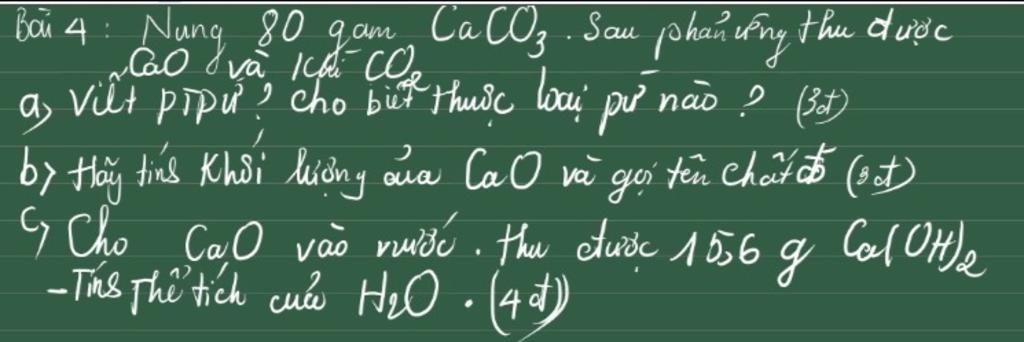 Bài 4 : Nung 80 gam CaCO3 . Sau phản ứng thu được
CaO và khí CO2
a) Viết PTPƯ ? cho biết thuộc loại pư nào ? (3đ)
b) Hãy tính khối lượng của CaO và gọi tên chất đó (3đ)
c) Cho CaO vào nước . thu được 15,6 g Ca(OH)2
- Tính thể tích của H2O . (4đ)